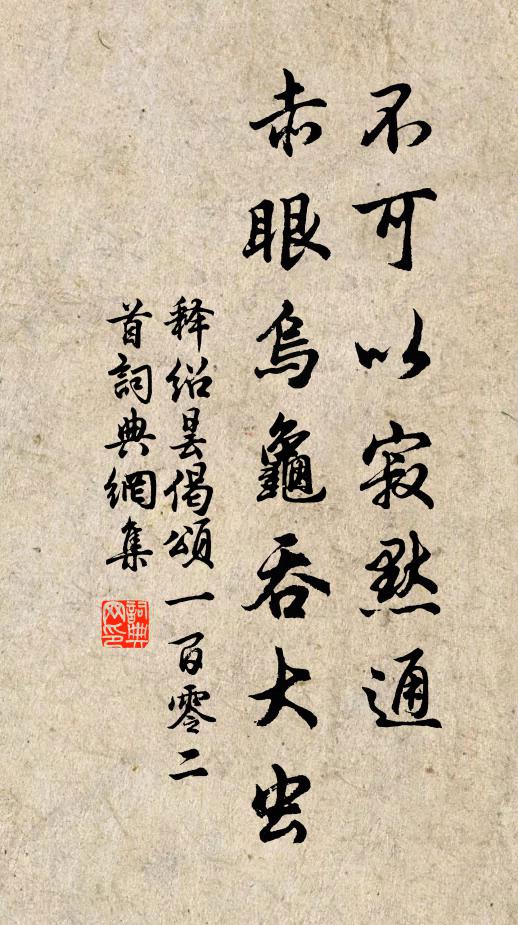 不可以寂默通
赤眼烏龜吞大虫
释绍昙偈頌一百零二
首詞典網集
詞典网印